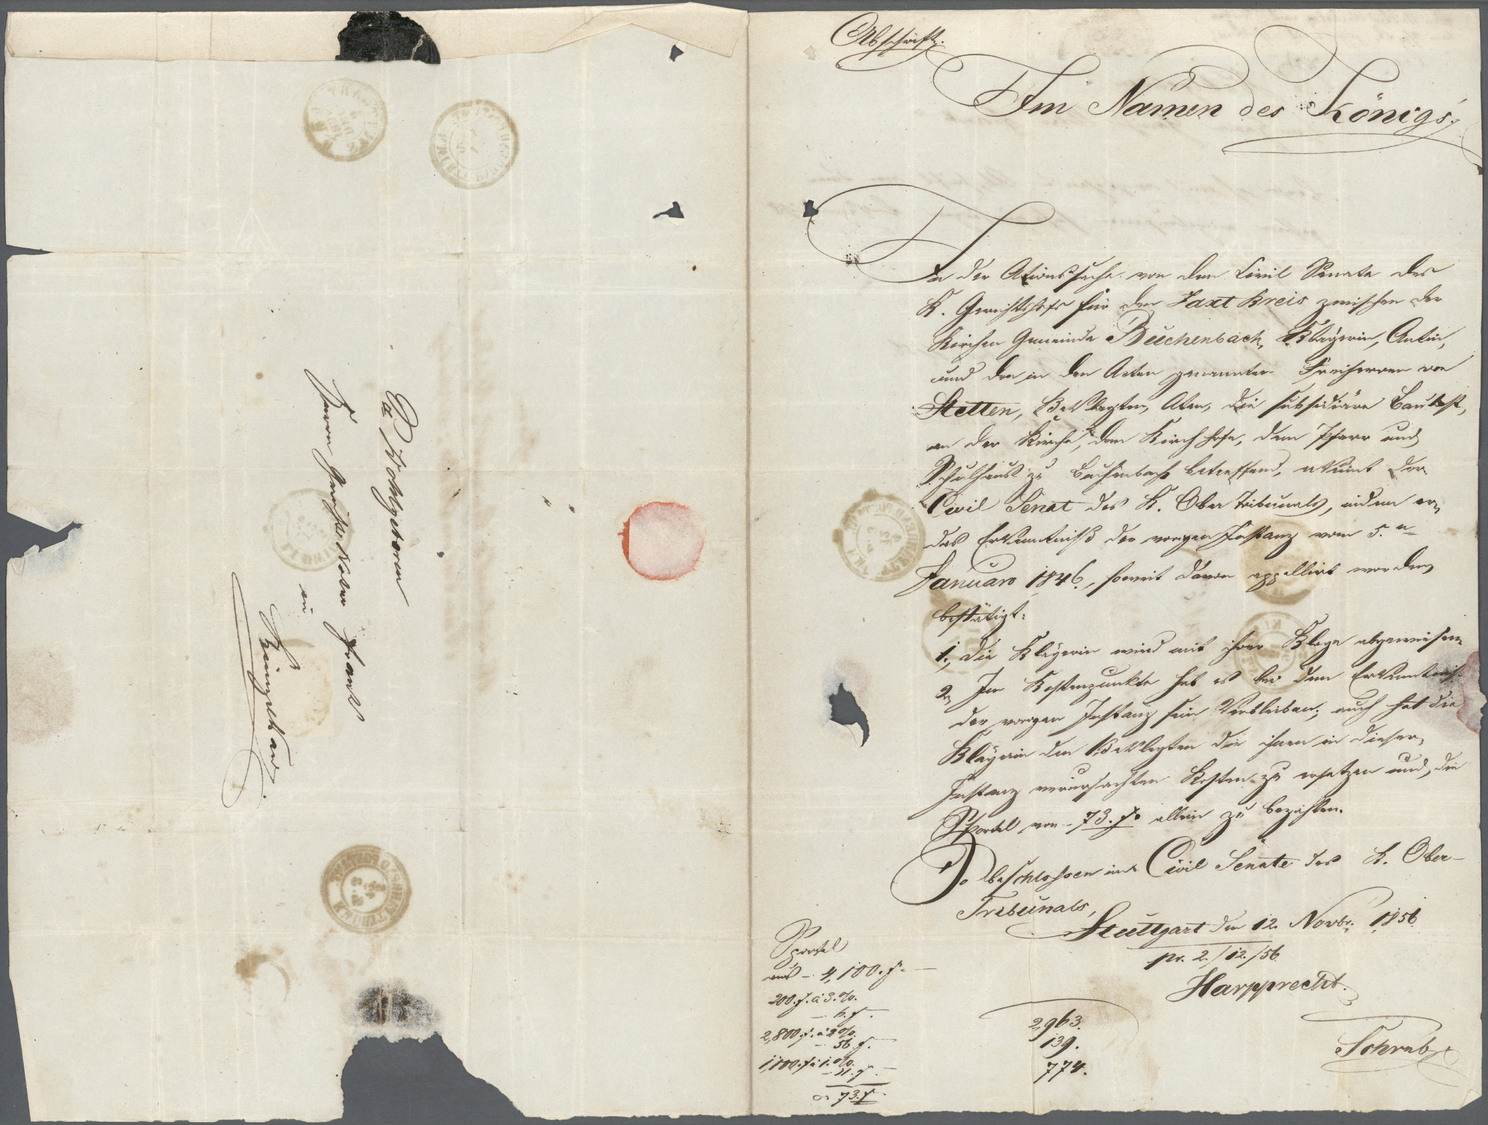 Abschrift.
Im Namen des Königs,
In der Ationssache von dem Civil Senate des
K. Gerichtshofs für den Jaxt Kreis zwischen der
Kirchen Gemeinde Buchenbach, Klägerin, Antin,
und den in den Acten genannten Freiherren von
Stetten, Beklagten, Aten, die subsidiäre Baulast,
an der Kirche, dem Kirchhofe, dem Pfarr und
Schulhaus zu Buchenbach betreffend, erkennt der
Civil Senat des K. Ober Tribunals, indem er
das Erkenntniß der vorigen Instanz vom 5.n
Januar 1846, soweit davon appellirt worden,
bestätigt:
1, die Klägerin wird mit ihrer Klage abgewiesen.
2, Im Kostenpunkte hat es bei dem Erkenntniß
der vorigen Instanz sein Verbleiben; auch hat die
Klägerin den Beklagten die ihnen in dieser
Instanz verursachten Kosten zu ersetzen und die
Sportel von - 73. f. allein zu bezahlen.
So beschlossen im Civil Senate des K. Ober-
Tribunals,
Stuttgart den 12. Novbr. 1856
pr. 2./12./56
Harpprecht.
Schwab
Sportel
aus - 4,100. f. -
200. f. à 3. %.
- 6. f. -
2,800. f. à 2 %.
- 56. f. -
1,100. f. à 1. %.
- 11. f. -
73. f.
2963.
139.
774.
Sr Wohlgeboren
Herrn Gerichts Notar Franz
in
Künzelsau.